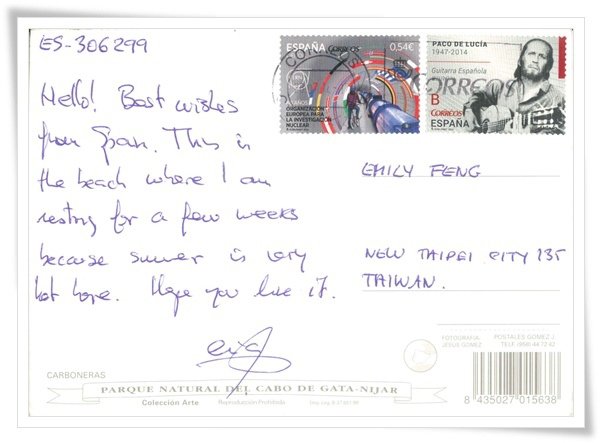 ES-306299
Hello! Best wishes
from Spain. This is
the beach where I am
resting for a few weeks
because summer is very
hot here. Hope you like it.
ESPAÑA CORREOS 0,54€
ORGANIZACIÓN
EUROPEA PARA
LA INVESTIGACIÓN
NUCLEAR
PACO DE LUCÍA
1947-2014
Guitarra Española
CORREOS
B
CORREOS
ESPAÑA
EMILY FENG
NEW TAIPEI CITY 235
TAIWAN.
FOTOGRAFIA:
JESÚS GOMEZ
POSTALES GOMEZ J.
CARBONERAS
PARQUE NATURAL DEL CABO DE GATA-NIJAR
Colección Arte Reproducción Prohibida
8 435027 015638